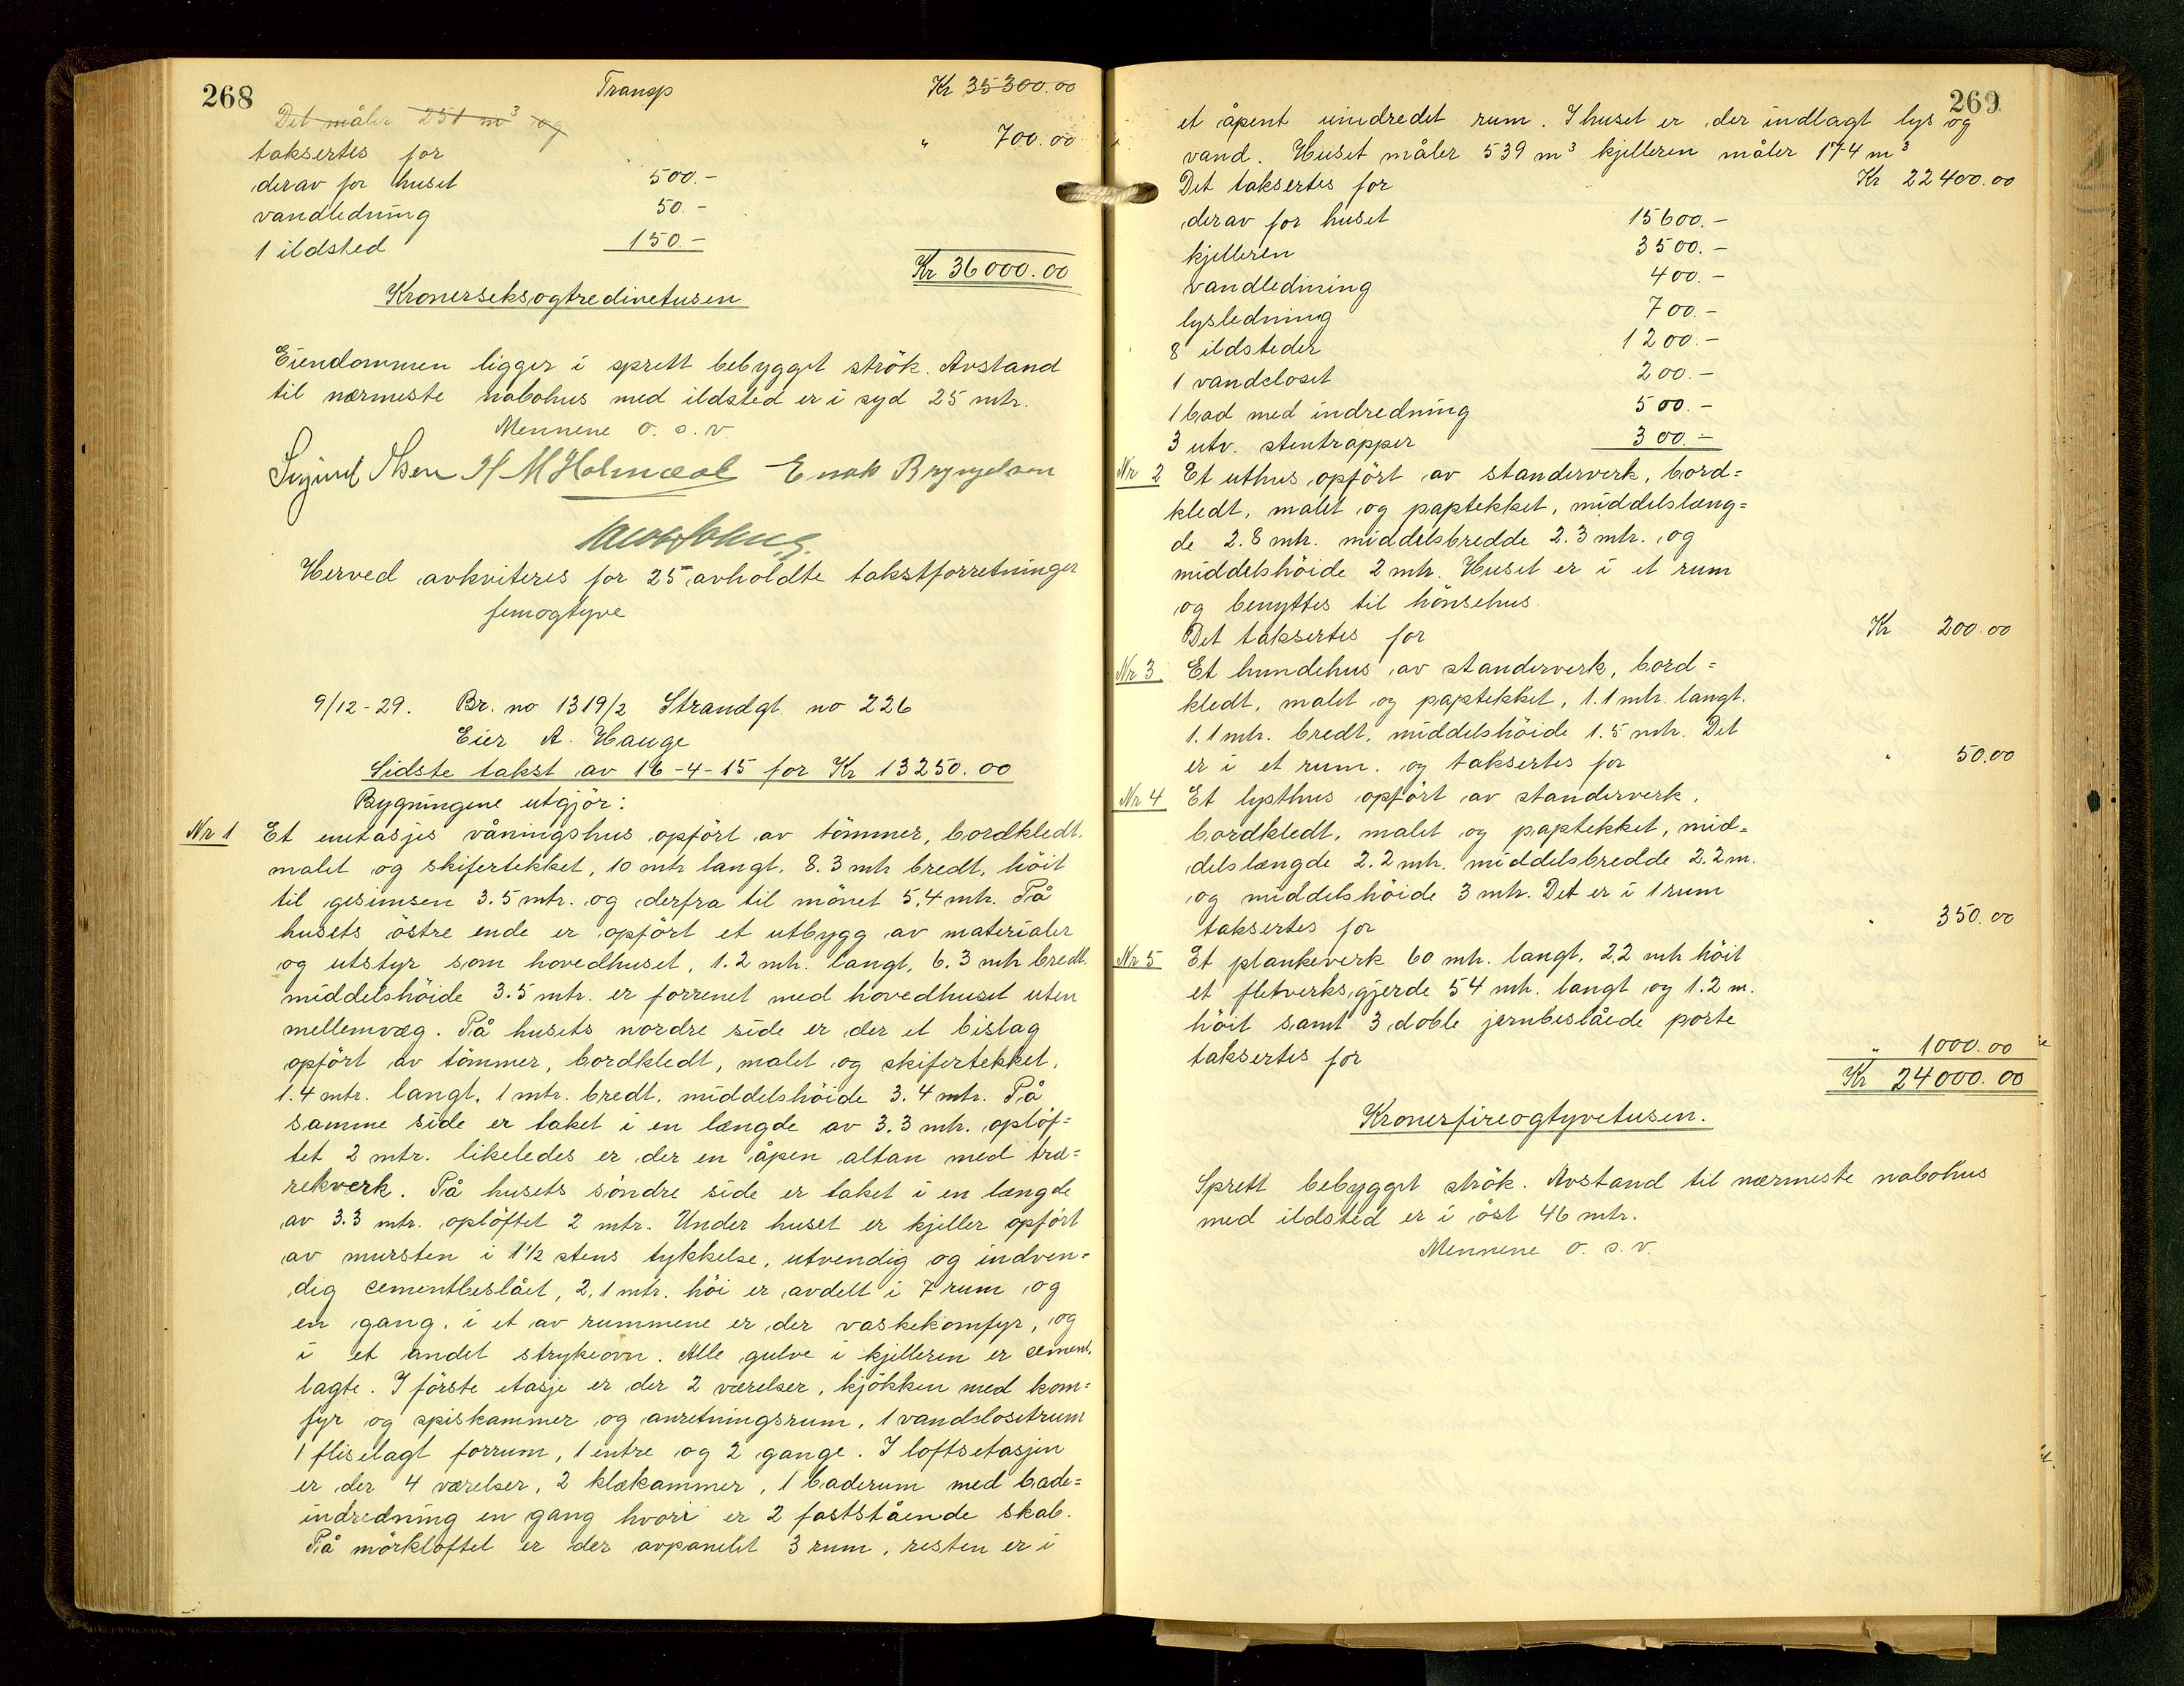 268
Transp Kr 35300.00
Det måler 251 m³ og
taksertes for " 700.00
derav for huset 500.-
vandledning 50.-
1 ildsted 150.-
Kr 36000.00
Kronerseksogtredivetusen
Eiendommen ligger i sprett bebygget strök. Avstand
til nærmeste nabohus med ildsted er i syd 25 mtr.
Mennene o. s. v.
H M
Herved avkviteres for 25 avholdte takstforretninger
femogtyve
9/12-29. Br. no 1319/2 Strandgt. no 226
Eier A. Hauge
Sidste takst av 16-4-15 for Kr 13250.00
Bygningene utgjör:
Nr 1 Et enetasjes våningshus opfört av tömmer, bordkledt,
malet og skifertekket, 10 mtr langt, 8.3 mtr bredt, höit
til gesimsen 3.5 mtr. og derfra til mönet 5.4 mtr. På
husets östre ende er opfört et utbygg av materialer
og utstyr som hovedhuset, 1.2 mtr. langt, 6.3 mtr bredt.
middelshöide 3.5 mtr. er forrenet med hovedhuset uten
mellemvæg. På husets nordre side er der et bislag
opfört av tömmer, bordkledt, malet og skifertekket,
1.4 mtr. langt, 1 mtr. bredt, middelshöide 3.4 mtr. På
samme side er taket i en længde av 3.3 mtr. oplöf=
tet 2 mtr. likeledes er der en åpen altan med træ=
rekverk. På husets söndre side er taket i en længde
av 3.3 mtr. oplöftet 2 mtr. Under huset er kjeller opfört
av mursten i 1½ stens tykkelse, utvendig og indven=
dig cementbeslået, 2,1 mtr. höi er avdelt i 7 rum og
en gang, i et av rummene er der vaskekomfyr, og
i et andet strykeovn. Alle gulve i kjelleren er cement.
lagte. I förste etasje er der 2 værelser, kjökken med kom=
fyr og spiskammer og anretningsrum, 1 vandclosetrum
1 fliselagt forrum, 1 entre og 2 gange. I loftsetasjen
er der 4 værelser, 2 klækammer, 1 baderum med bade=
indredning en gang hvori er 2 faststående skab.
På mörkloftet er der avpanelet 3 rum, resten er i
269
et åpent uindredet rum. I huset er der indlagt lys og
vand. Huset måler 539 m³ kjelleren måler 174 m³
Det taksertes for Kr 22400.00
derav for huset 15600.-
kjelleren 3500.-
vandledning 400.-
lysledning 700.-
8 ildsteder 1200.-
1 vandcloset 200.-
1 bad med indredning 500.-
3 utv. stentrapper 300.-
Nr 2 Et uthus opfört av standerverk, bord=
kledt, malet og paptekket, middelslæng=
de 2.8 mtr. middelsbredde 2.3 mtr. og
middelshöide 2 mtr. Huset er i et rum
og benyttes til hönsehus.
Det taksertes for Kr 200.00
Nr 3 Et hundehus av standerverk, bord=
kledt, malet og paptekket, 1.1 mtr. langt.
1.1 mtr. bredt, middelshöide 1.5 mtr. Det
er i et rum. og taksertes for " 50.00
Nr 4 Et lysthus opfört av standerverk,
bordkledt, malet og paptekket, mid=
delslængde 2.2 mtr. middelsbredde 2.2 m.
og middelshöide 3 mtr. Det er i 1 rum
taksertes for " 350.00
Nr 5 Et plankeverk 60 mtr. langt, 2,2 mtr höit
et fletverksgjerde 54 mtr. langt og 1.2 m.
höit samt 3 doble jernbeslåede porte
taksertes for " 1000.00
Kr 24000.00
Kronerfireogtyvetusen.
Sprett bebygget strök. Avstand til nærmeste nabohus
med ildsted er i öst 46 mtr.
Mennene o. s. v.